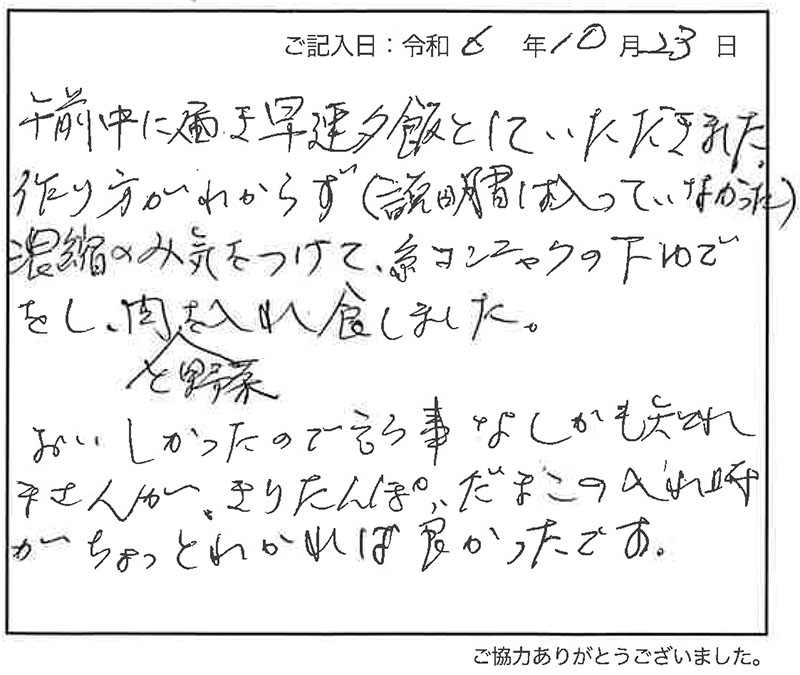 ご記入日：令和 6 年 10 月 23 日
午前中に届き早速夕飯としていただきました。
作り方がわからず(説明書は入っていなかった)
濃縮のみ気をつけて、糸コンニャクの下ゆで
をし、肉を入れ食しました。
と野菜
おいしかったので言う事なしかも知れ
ませんが、きりたんぽ、だまこの入れ時
がちょっとわかれば良かったです。
ご協力ありがとうございました。